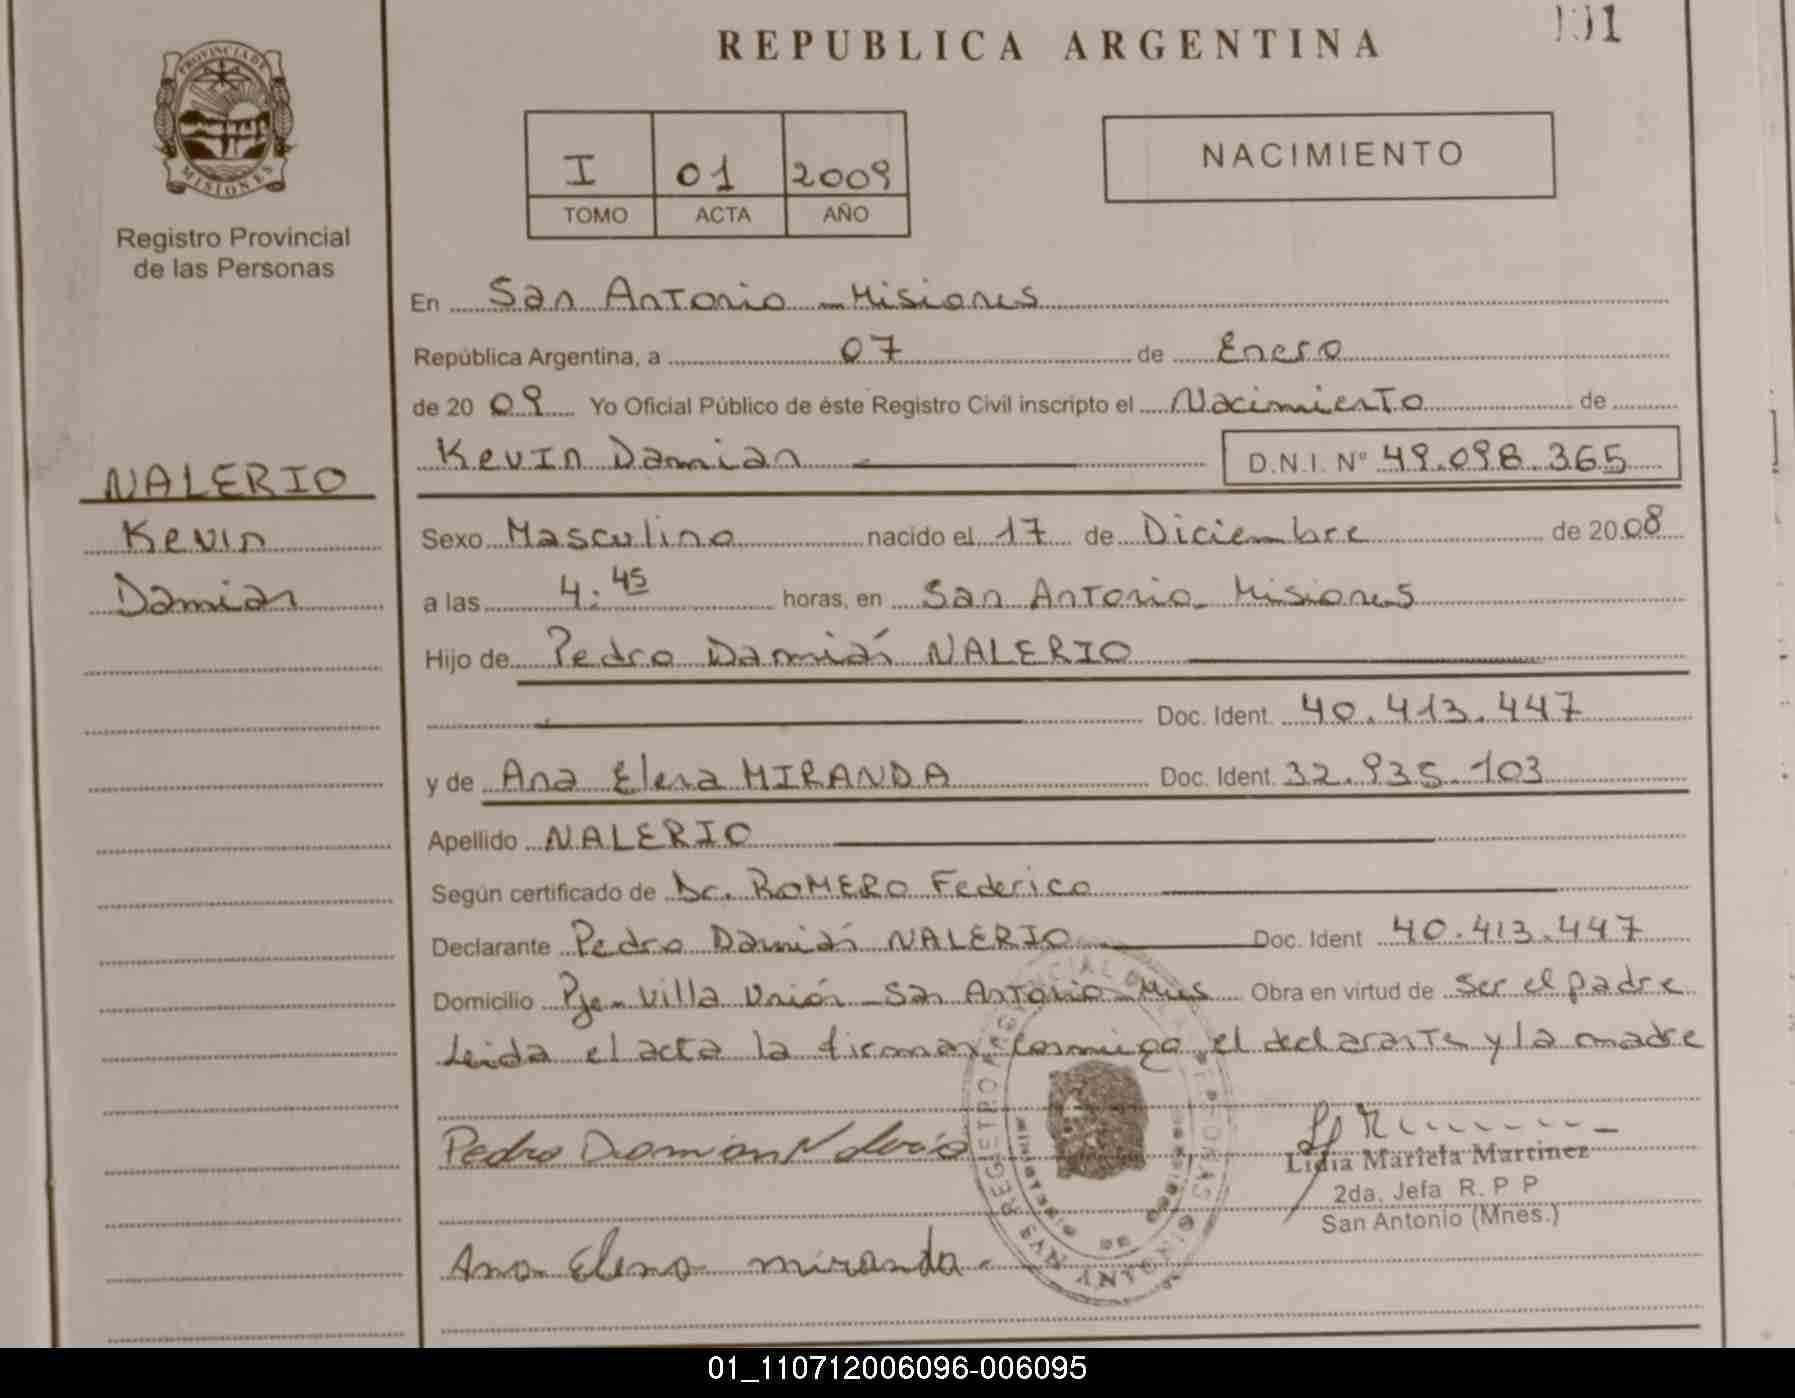 REPUBLICA ARGENTINA
101
PROVINCIA DE
MISIONES
Registro Provincial
de las Personas
I 01 2009
TOMO ACTA AÑO
NACIMIENTO
En San Antonio - Misiones
República Argentina, a 07 de Enero
de 20 09 Yo Oficial Público de éste Registro Civil inscripto el Nacimiento de
Kevin Damian D.N.I. Nº 49.098.365
NALERIO
Kevin
Damian
Sexo Masculino nacido el 17 de Diciembre de 20 08
a las 4:45 horas, en San Antonio - Misiones
Hijo de Pedro Damián NALERIO
Doc. Ident. 40.413.447
y de Ana Elena MIRANDA Doc. Ident. 32.935.103
Apellido NALERIO
Según certificado de Dr. ROMERO Federico
Declarante Pedro Damián NALERIO Doc. Ident 40.413.447
Domicilio Pje- Villa Unión - San Antonio - Mnes Obra en virtud de ser el padre
Leida el acta la firman conmigo el declarante y la madre
Pedro Damian Nalerio
Lidia Mariela Martinez
2da. Jefa R. P P
San Antonio (Mnes.)
Ana Elena miranda-
01_110712006096-006095